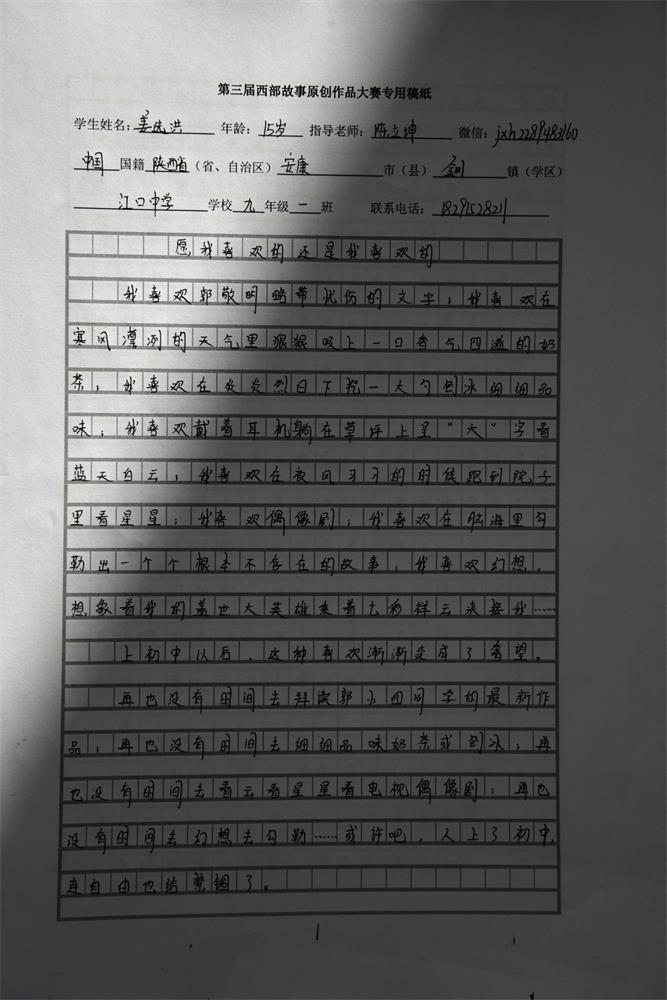 第三届西部故事原创作品大赛专用稿纸
学生姓名：姜 洪 年龄：15岁 指导老师：陈立坤 微信：jxh2289483160
中国 国籍 陕西省（省、自治区）安康 市（县） 镇（学区）
江口中学 学校 九 年级 一 班 联系电话：18291528211
愿我喜欢的还是我喜欢的
我喜欢郭敬明略带忧伤的文字；我喜欢在
寒风凛冽的天气里狠狠吸上一口香气四溢的奶
茶；我喜欢在炎炎烈日下挖一大勺刨冰细细品
味；我喜欢戴着耳机躺在草坪上呈“大”字看
蓝天白云；我喜欢在夜风习习的时候跑到院子
里看星星；我喜欢偶像剧；我喜欢在脑海里勾
勒出一个个根本不存在的故事，我喜欢幻想，
想象着我的盖世大英雄乘着七彩祥云来接我……
上初中以后，这种喜欢渐渐变成了奢望。
再也没有时间去拜读郭小四同学的最新作
品；再也没有时间去细细品味奶茶或刨冰；再
也没有时间去看云看星星看电视偶像剧；再也
没有时间去幻想去勾勒……或许吧，人上了初中，
连自由也给禁锢了。
1